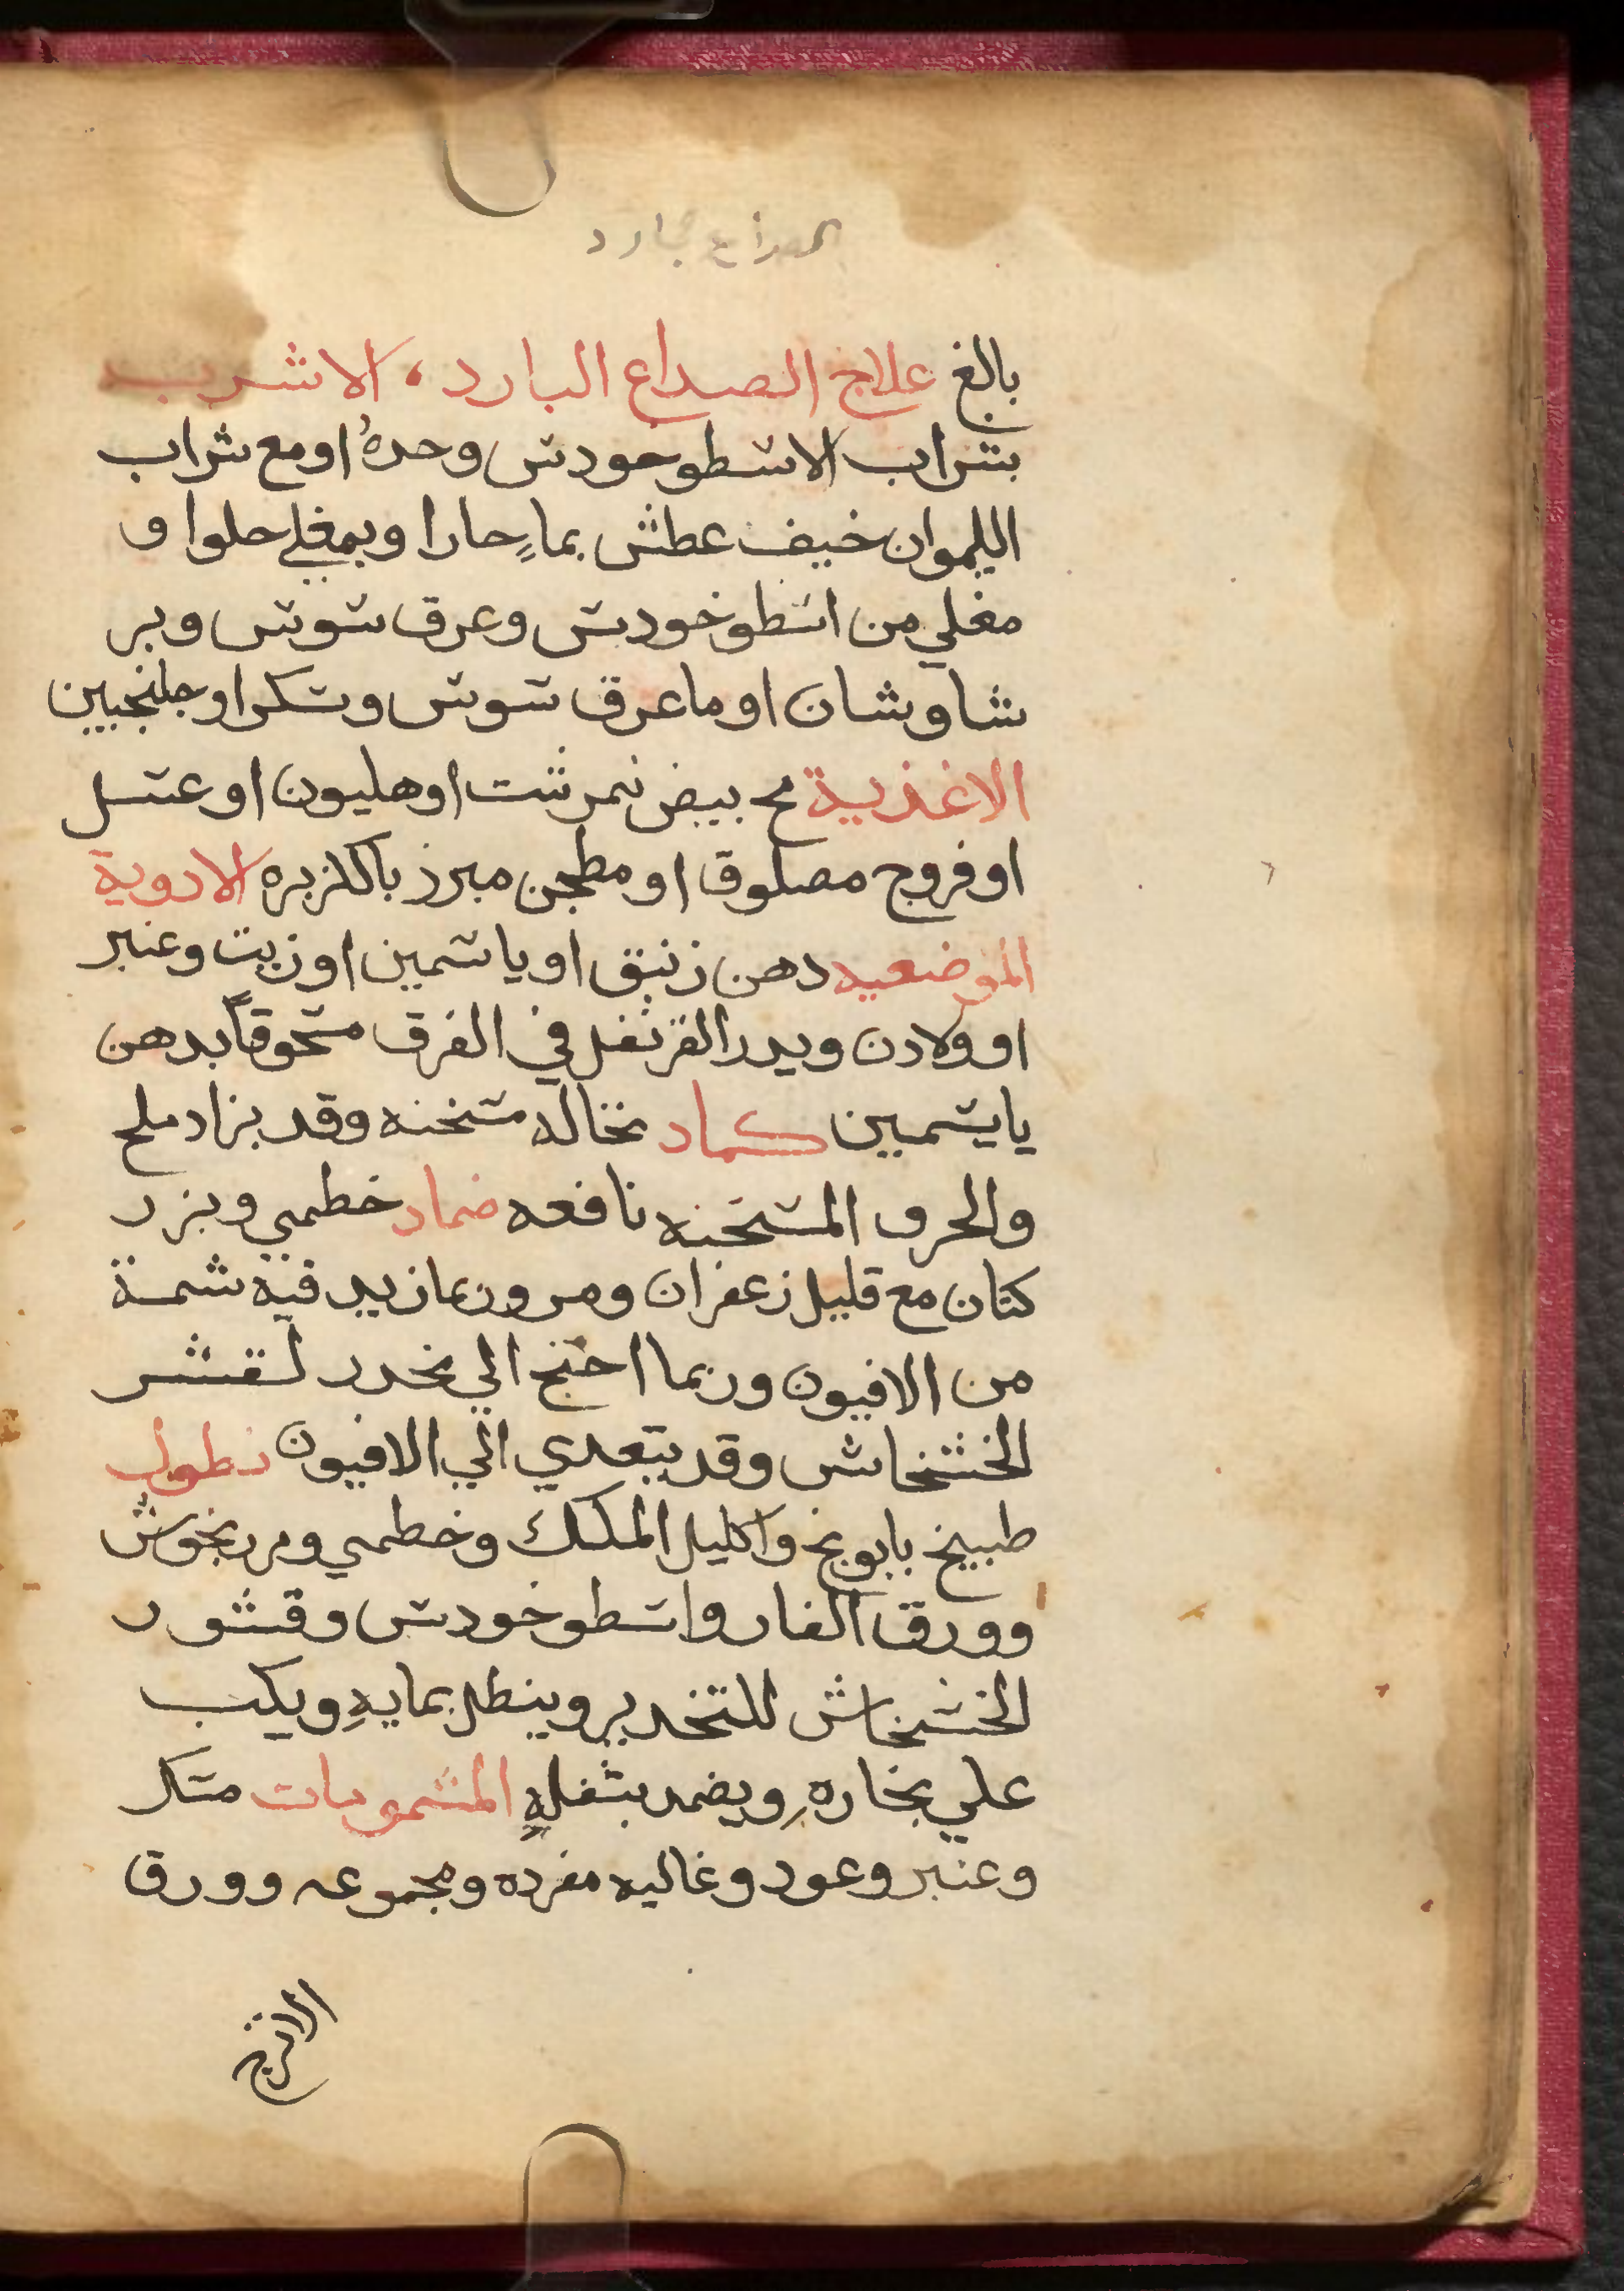 الصداع بارد
بالغ علاج الصداع البارد، الاشرب
بشراب الاسطوخودس وحدهُ او مع شراب
الليمو ان خيف عطش بماءٍ حارا وبمغلي حلوا و
مغلي من اسطوخودس وعرق سوس وبر
شاوشان او ما عرق سوس وسكر او جلنجبين
الاغذية مح بيض نمرشت او هليون او عسل
او فروج مصلوق او مطجن مبرز بالكزبره الادوية
الموضعيه دهن زنبق او ياسمين او زيت وعنبر
او ولادن ويدر القرنفل في الفرق مسحوقاً بدهن
ياسمين كماد نخاله مسخنه وقد يزاد ملح
والحرف المسخنه نافعه ضماد خطمي وبزر
كتان مع قليل زعفران ومر وربما زيد فيه شمة
من الافيون وربما احتج الي مخدر لقشر
الخشخاش وقد يتعدي الي الافيون نطول
طبيخ بابونج واكليل الملك وخطمي ومرزنجوش
وورق الغار واسطوخودس وقشور
الخشخاش للتخدير وينطل بمايهِ ويكب
علي بخارهِ ويضمد بثفلهِ المشمومات مسك
وعنبر وعود وغاليه مفرده ومجموعه وورق
الاترج